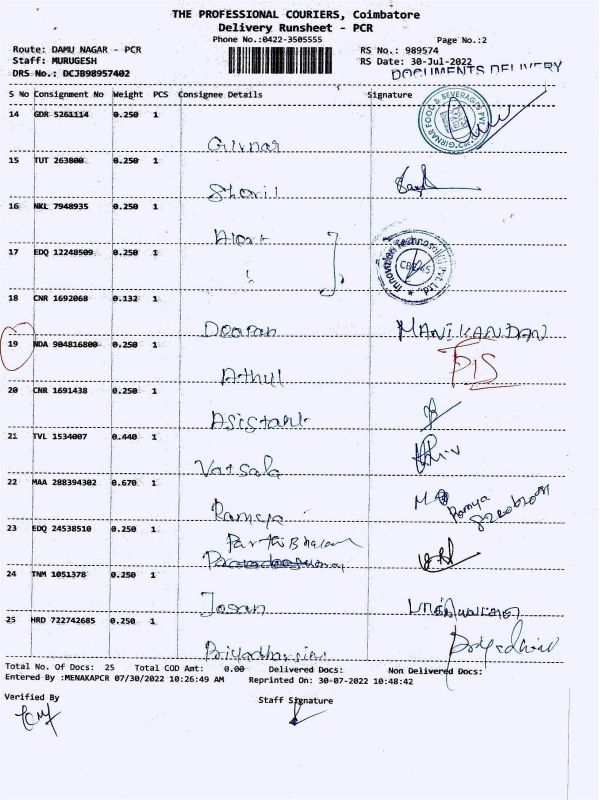 THE PROFESSIONAL COURIERS, Coimbatore
Delivery Runsheet - PCR
Phone No.:0422-3505555 Page No.:2
Route: DAMU NAGAR - PCR RS No.: 989574
Staff: MURUGESH RS Date: 30-Jul-2022
DRS No.: DCJB98957402 DOCUMENTS DELIVERY
S No Consignment No Weight PCS Consignee Details Signature
14 GDR 5261114 0.250 1
GIRNAR FOOD & BEVERAGES PVT
Girnar
15 TUT 263800 0.250 1
16 NKL 7948935 0.250 1
17 EDQ 12248509 0.250 1
Innovizion Technosoft Pvt. Ltd.,
18 CNR 1692068 0.132 1
Deepan MANIKANDAN
19 NDA 904816800 0.250 1
Athul
20 CNR 1691438 0.250 1
Asistant
21 TVL 1534007 0.440 1
Vatsala
22 MAA 288394302 0.670 1
Ramya Ramya
23 EDQ 24538510 0.250 1
24 TNM 1051378 0.250 1
25 HRD 722742685 0.250 1
Priyadharsini
Total No. Of Docs: 25 Total COD Amt: 0.00 Delivered Docs: Non Delivered Docs:
Entered By :MENAKAPCR 07/30/2022 10:26:49 AM Reprinted On: 30-07-2022 10:48:42
Verified By Staff Signature